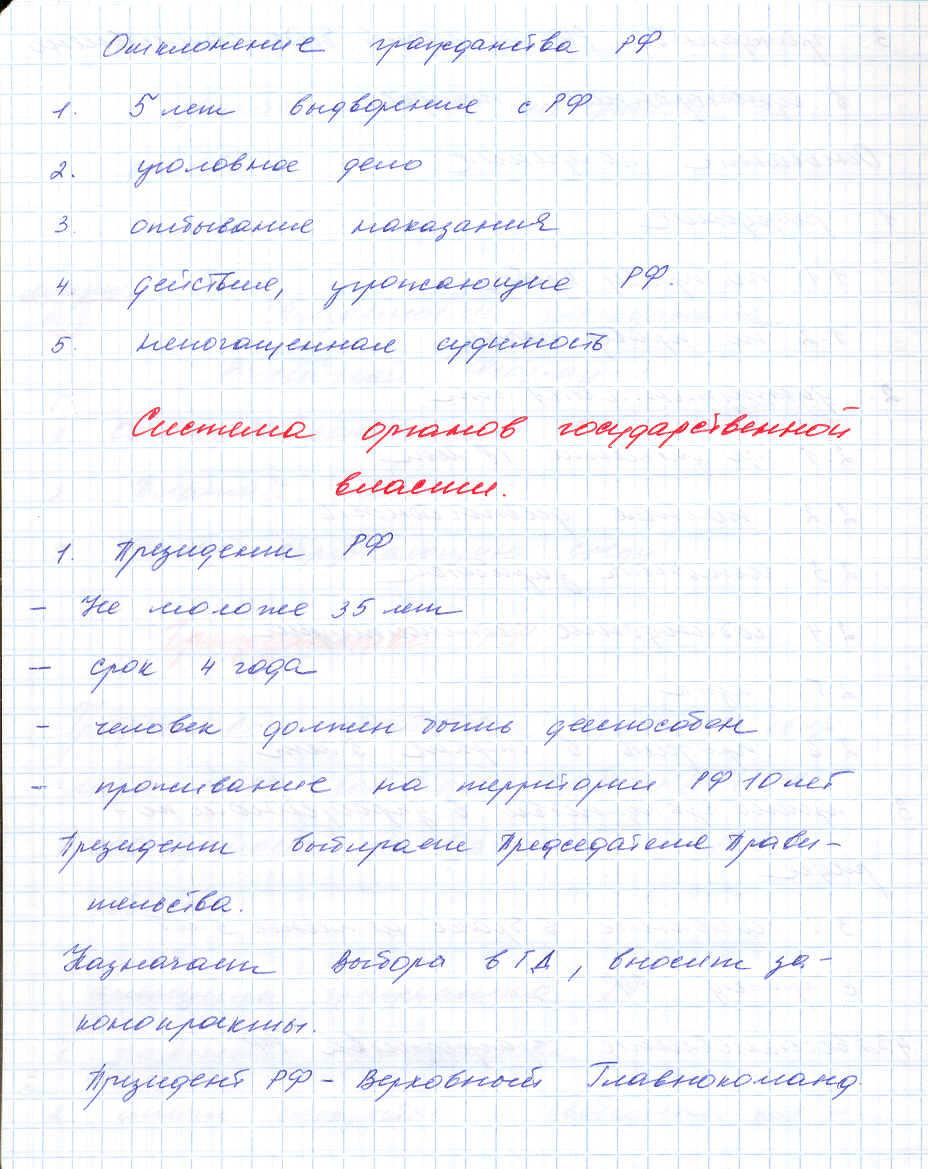 Отклонение гражданства РФ
1. 5 лет выдворения с РФ
2. уголовное дело
3. отбывание наказания
4. действия, угрожающие РФ.
5. непогащенная судимость
Система органов государственной
власти.
1. Президент РФ
- Не моложе 35 лет
- срок 4 года
- человек должен быть дееспособен
- проживание на территории РФ 10 лет
Президент выбирает Председателя Прави-
тельства.
Назначает выбора в ГД, вносит за-
конопракты.
Президент РФ - Верховный Главнокоманд.